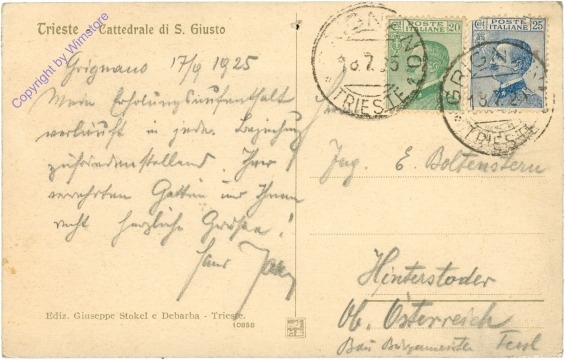 Trieste - Cattedrale di S. Giusto
Grignano 17/9 1925
Mein Erholungsaufenthalt
verläuft in jeder Beziehung
zufriedenstellend. Ihrer
verehrten Gattin und Ihnen
recht herzliche Grüße!
Ediz. Giuseppe Stokel e Debarba - Trieste.
10858
POSTE ITALIANE 20
POSTE ITALIANE 25
GRIGNANO
TRIESTE
GRIGNANO
TRIESTE
Ing. E. Boltenstern
Hinterstoder
Ob. Österreich
Bei Bürgermeister
Copyright by Winstore